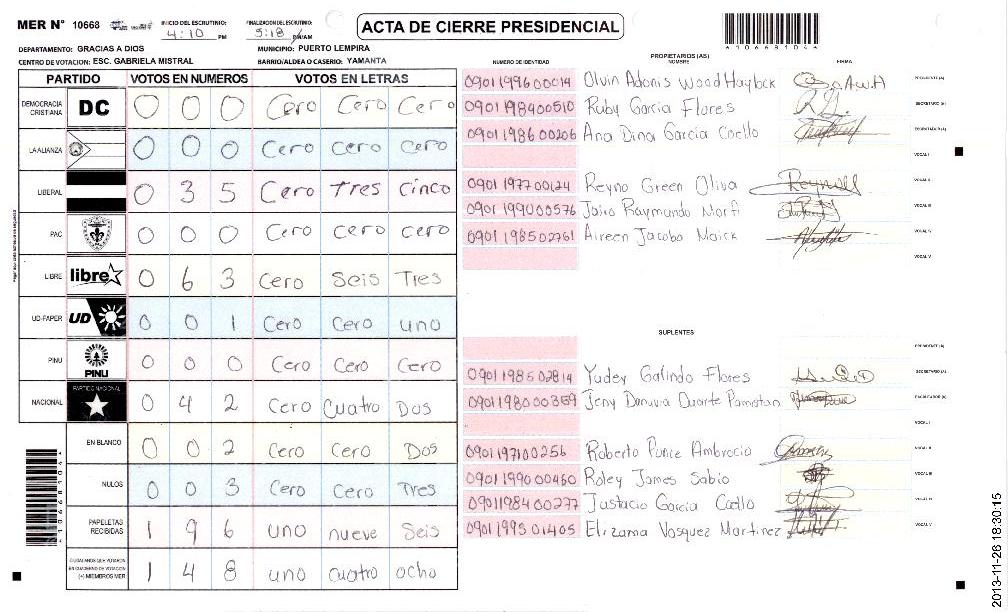 MER N° 10668 INICIO DEL ESCRUTINIO: 4:10 PM FINALIZACION DEL ESCRUTINIO: 5:18 PM/AM
ACTA DE CIERRE PRESIDENCIAL
DEPARTAMENTO: GRACIAS A DIOS MUNICIPIO: PUERTO LEMPIRA
CENTRO DE VOTACION: ESC. GABRIELA MISTRAL BARRIO/ALDEA O CASERIO: YAMANTA
PARTIDO VOTOS EN NUMEROS VOTOS EN LETRAS
DEMOCRACIA CRISTIANA DC 0 0 0 Cero Cero Cero
LA ALIANZA 0 0 0 Cero Cero Cero
LIBERAL 0 3 5 Cero Tres Cinco
PAC 0 0 0 Cero Cero Cero
LIBRE libre 0 6 3 Cero Seis Tres
UD-FAPER UD 0 0 1 Cero Cero uno
PINU PINU 0 0 0 Cero Cero Cero
NACIONAL PARTIDO NACIONAL 0 4 2 Cero Cuatro Dos
EN BLANCO 0 0 2 Cero Cero Dos
NULOS 0 0 3 Cero Cero Tres
PAPELETAS RECIBIDAS 1 9 6 uno nueve Seis
CIUDADANOS QUE VOTARON EN CUADERNO DE VOTACION (+) MIEMBROS MER 1 4 8 uno cuatro ocho
1066810 4
PROPIETARIOS (AS)
NUMERO DE IDENTIDAD NOMBRE FIRMA
0901199600014 Olvin Adonis Wood Haylock PRESIDENTE (A)
0901198400510 Ruby Garcia Flores SECRETARIO (A)
0901198600206 Ana Dina Garcia Coello ESCRUTADOR (A)
VOCAL I
0901197700124 Reyno Green Oliva VOCAL II
0901199000576 Jairo Raymundo Morfi VOCAL III
0901198502761 Aireen Jacobo Maick VOCAL IV
VOCAL V
SUPLENTES
PRESIDENTE (A)
0901198502814 Yudey Galindo Flores SECRETARIO (A)
0901198000359 Jeny Danuvia Duarte Pamotan ESCRUTADOR (A)
VOCAL I
0901197100256 Roberto Ponce Ambrocio VOCAL II
0901199000460 Roley James Sabio VOCAL III
0901198400277 Justacio Garcia Coello VOCAL IV
0901199501405 Elizama Vasquez Martinez VOCAL V
2013-11-26 18:30:15